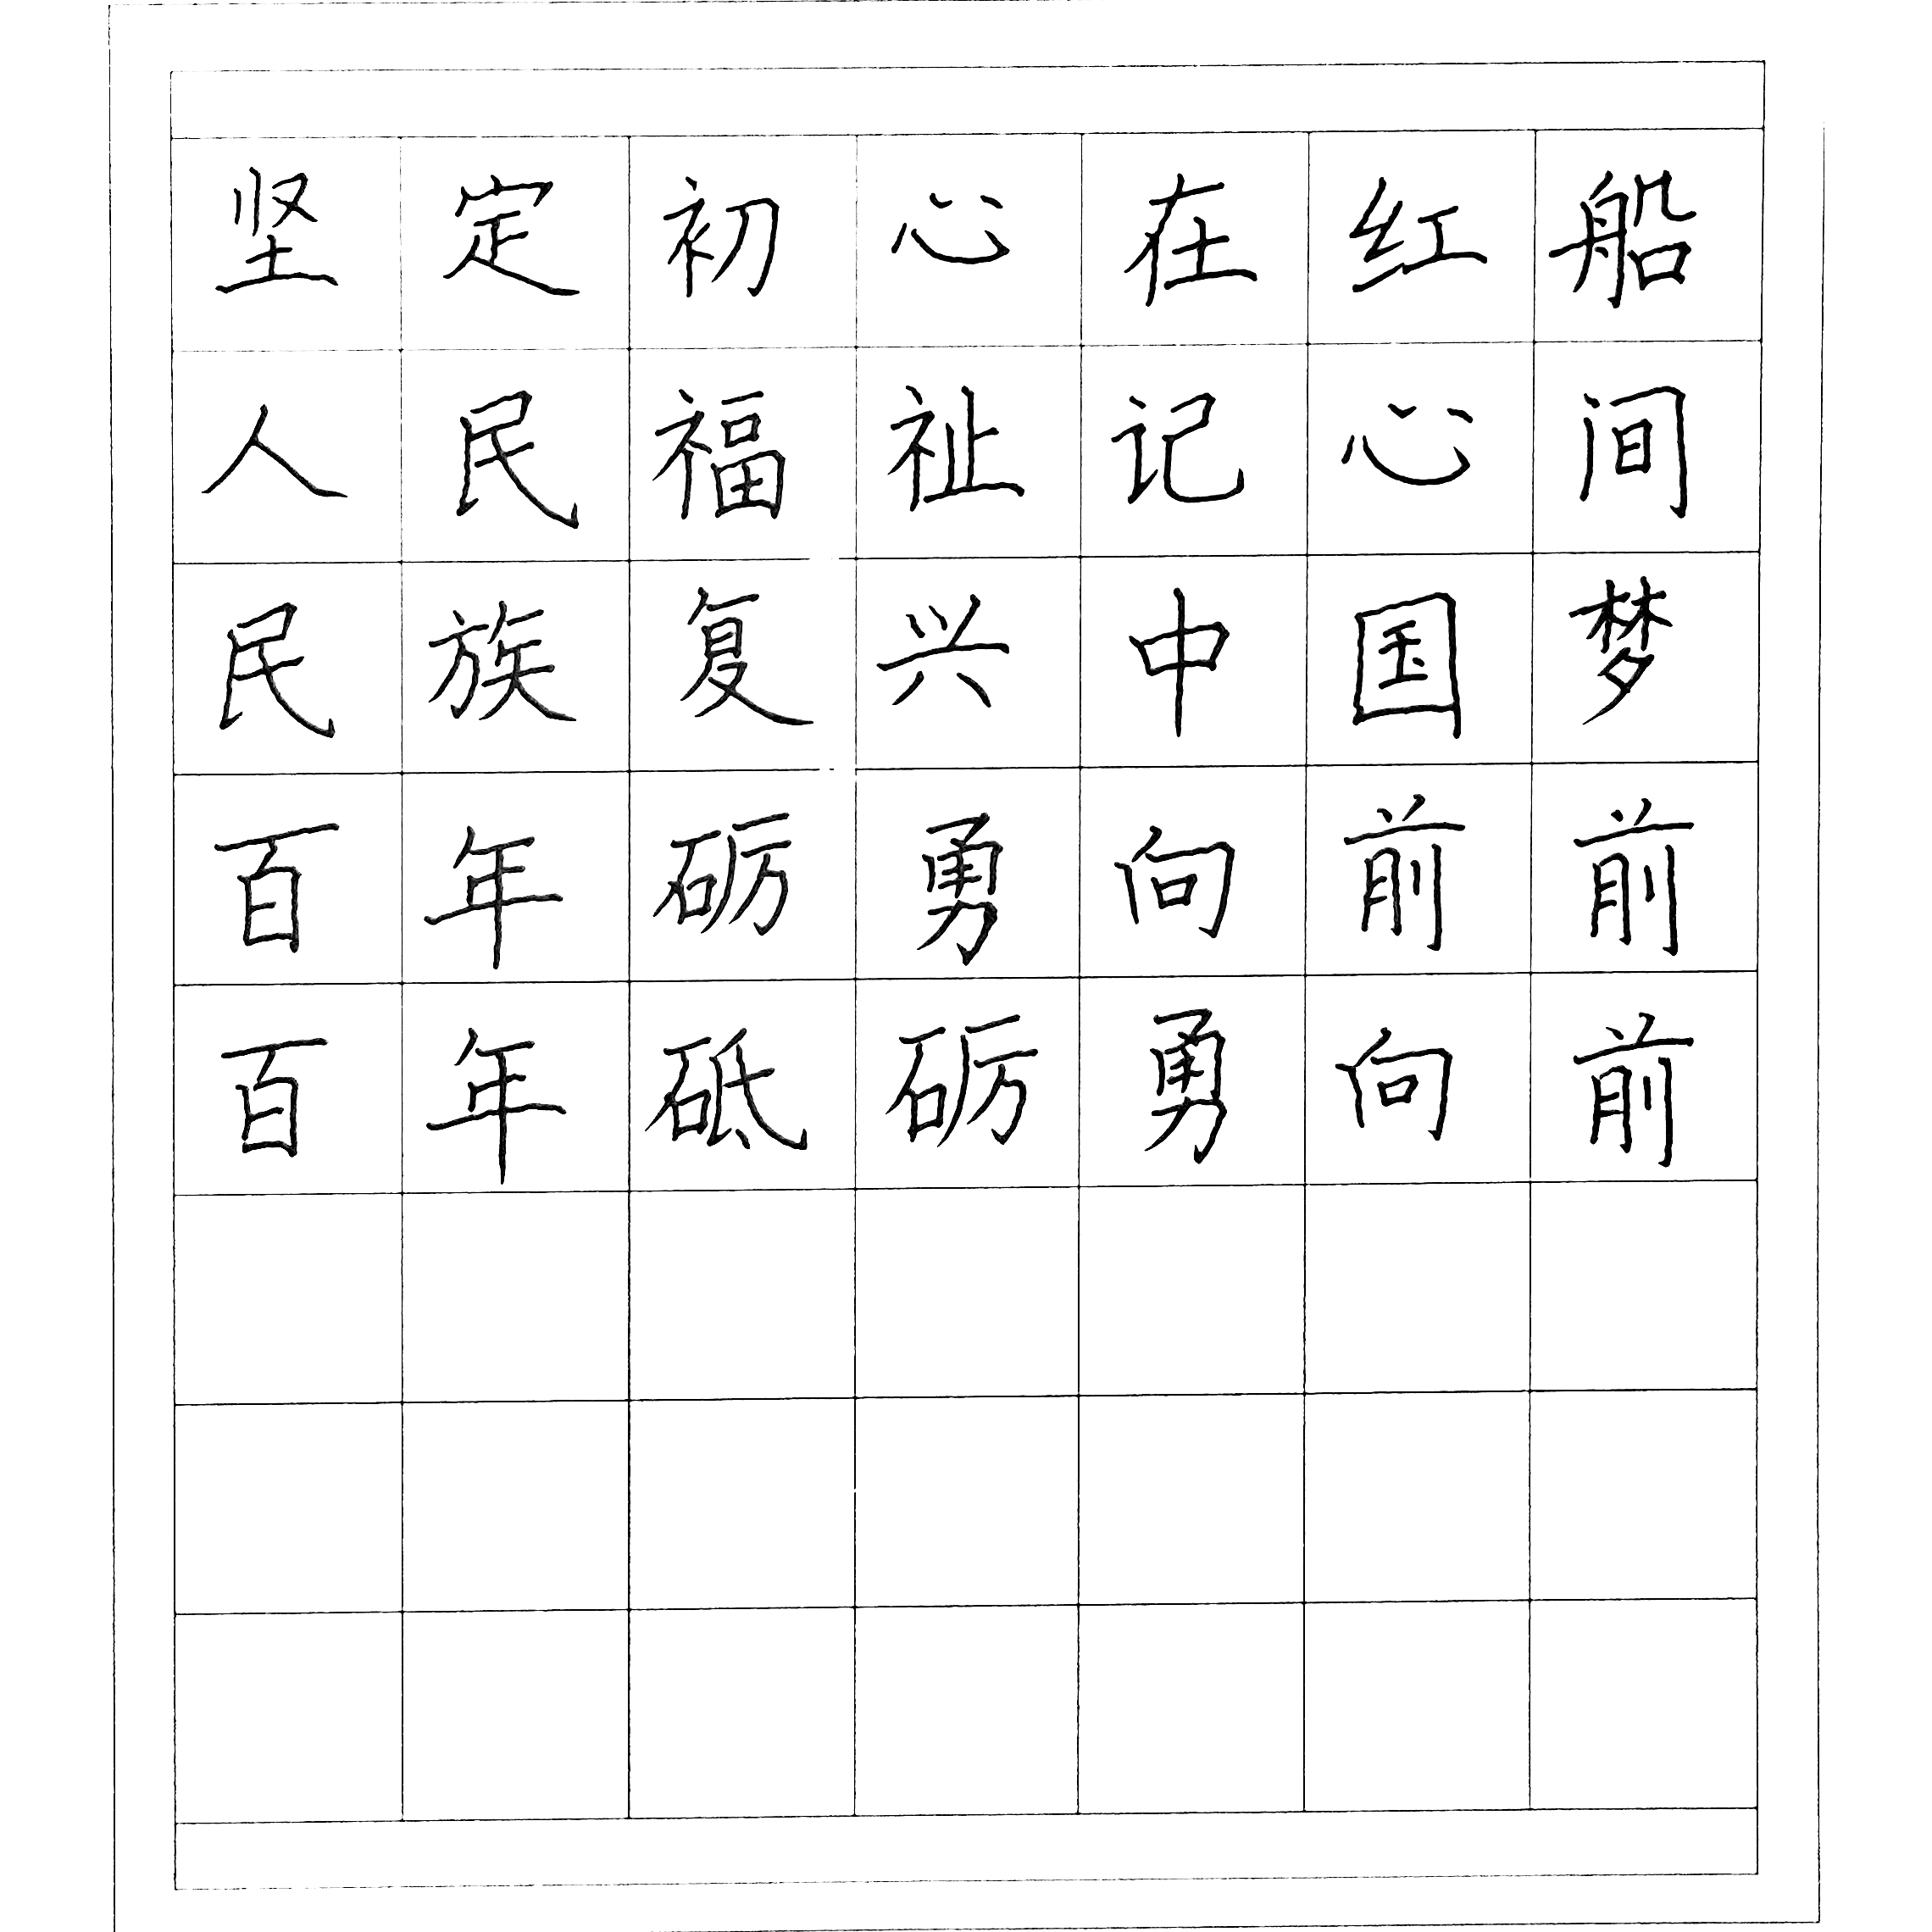 坚定初心在红船
人民福祉记心间
民族复兴中国梦
百年砺勇向前前
百年砥砺勇向前